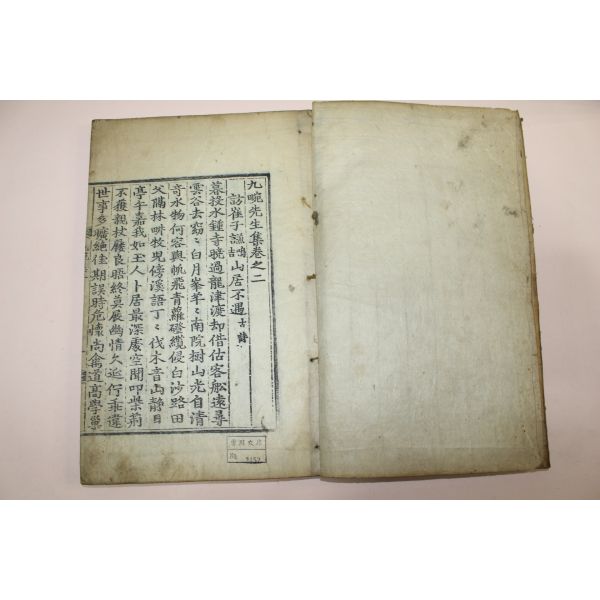 九畹先生集卷之二
訪崔子謙鳴吉山居不遇古詩
暮投水鍾寺曉過龍津渡却借估客船遠尋
雲谷去窈〻白月峯羊〻南院樹山光自清
奇水物何容與帆飛青蘿磴纜侵白沙路田
父隔林畊牧兒傍溪語丁〻伐木音山靜日
亭午嘉我如玉人卜居最深處空聞叩柴荊
不獲親杖屨良晤終莫展幽情久延佇乖違
世事多曠絶佳期誤時危懷尚禽道高學巢